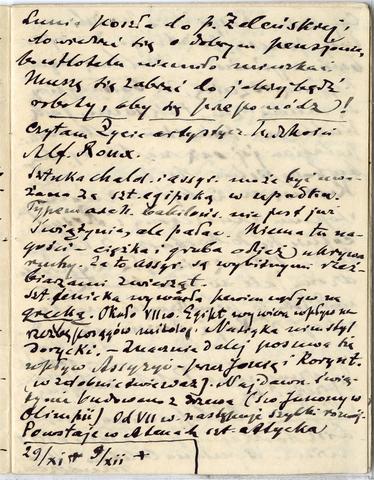 Lunia poszła do p. Zaleńskiej
dowiedzieć się o dobrym pensjonacie,
bo w Hotelu niemiło mieszkać
Muszę się zabrać do jakiejbądź
roboty, aby się przepo
Czytam Życie artystycz. Ludzkości
Alf. Roux.
Sztuka chald. i assyr. może być uwa-
żana za szt. egipską w upadku.
Typem arch. babiloń. nie jest już
świątynia, ale pałac. Niema tu na-
gości – ciężka i gruba odzież ukrywa
ruchy. Za to assyr. są wybitnymi rzeź-
biarzami zwierząt.
Szt. fenicka wywarła pewien wpływ na
grecką. Około VII w. Egipt wywiera wpływ na
rzeźbę posągów mitolog. Na nim styl
dorycki. – Znacznie dalej posuwa się
wpływ Assyryo – przez Jonię i Korynt.
(w zdobnictwie waz). Najdawn. świą-
tynie budowano z drzewa (św. Junony w
Olimpii) Od VII w. następuje szybki rozwój
Powstaje w Atenach szt. attycka
29/XI + 9/XII +